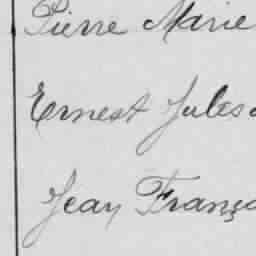 Pierre Marie
Ernest Jules
Jean Franço